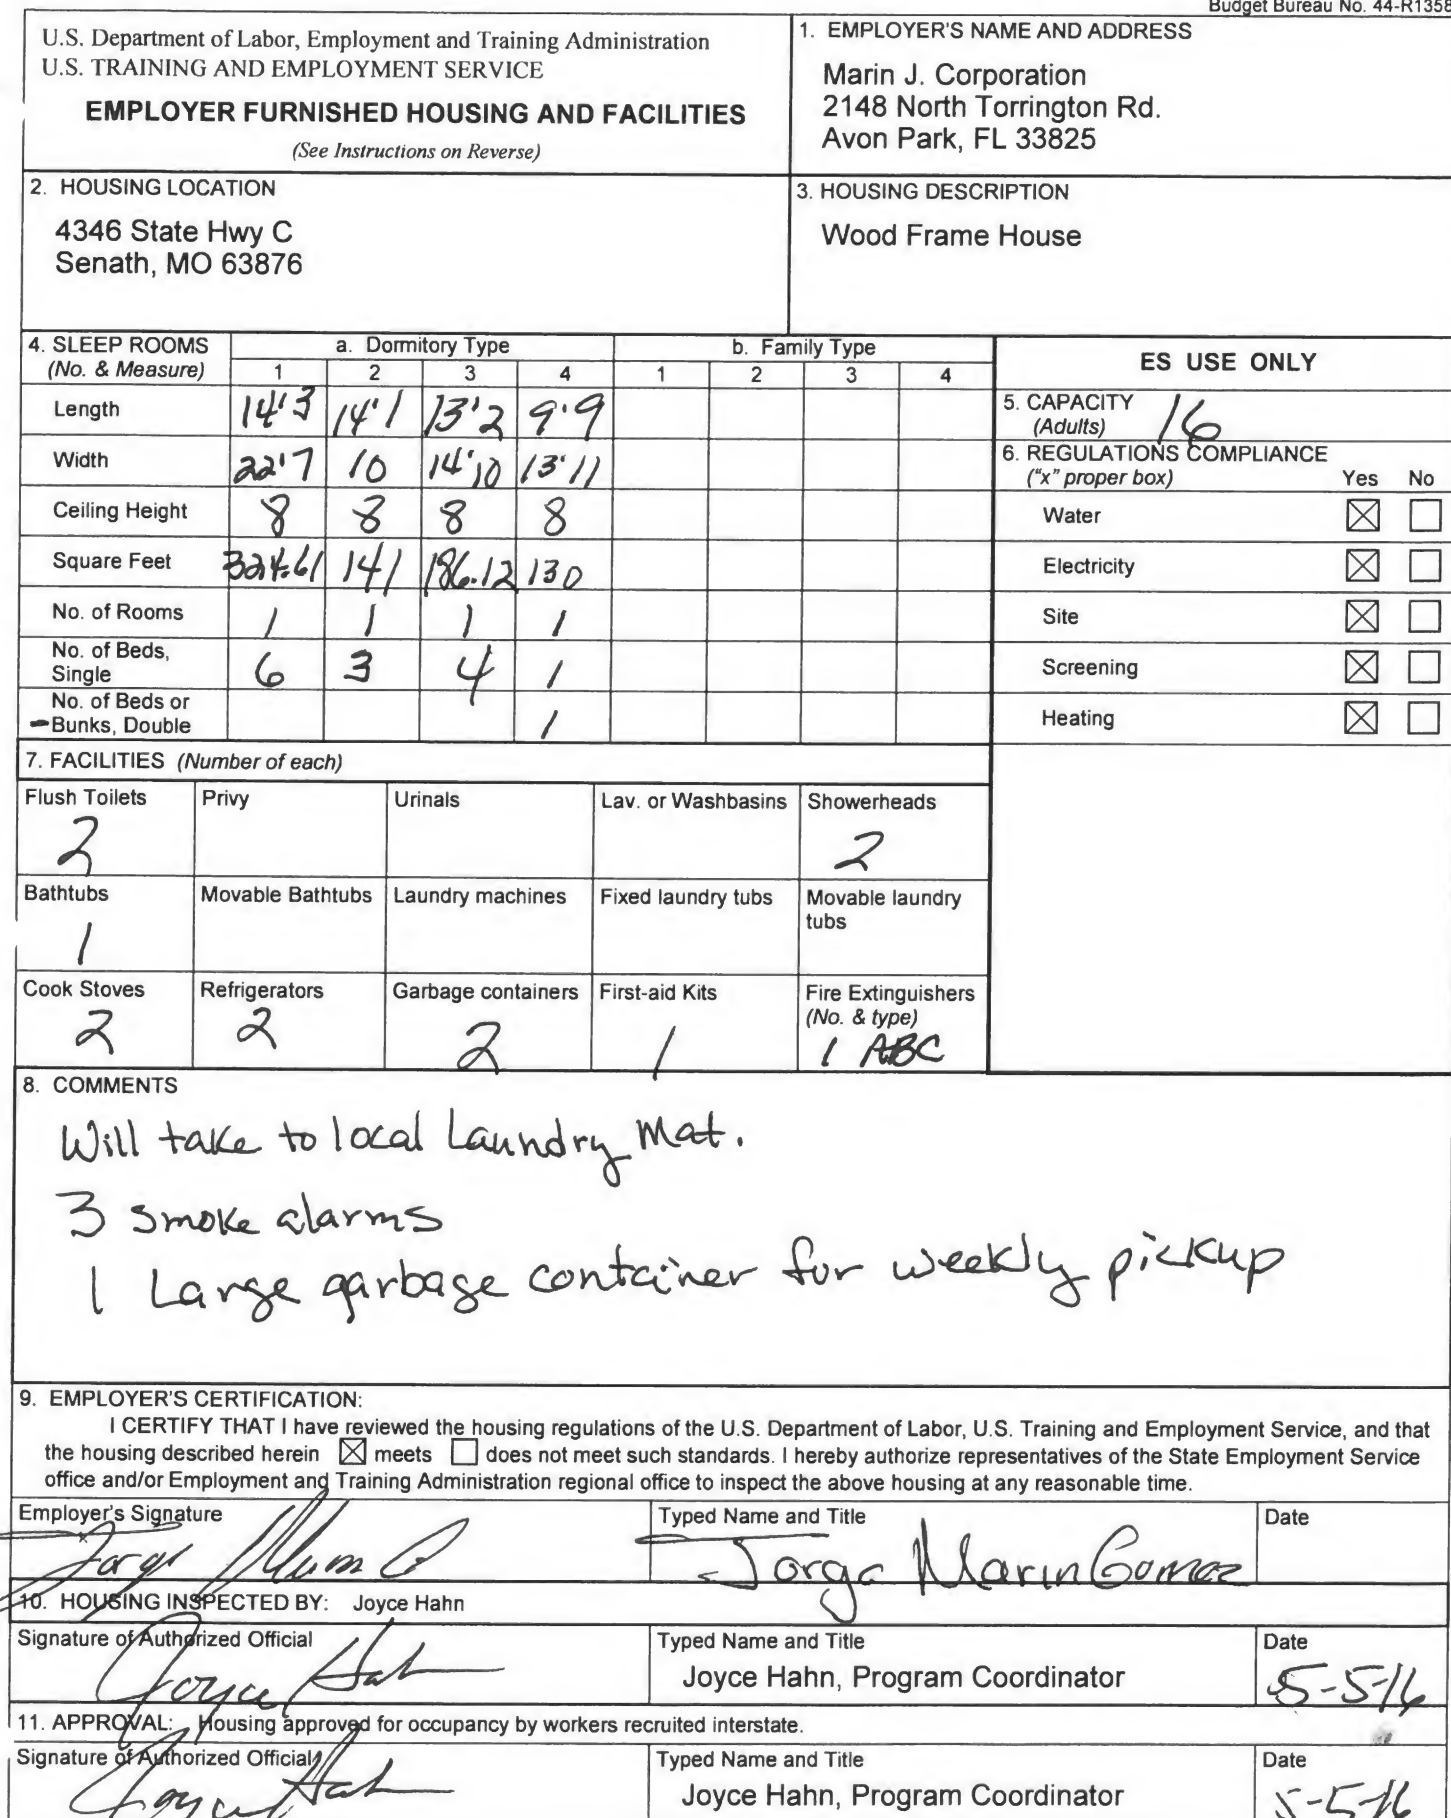 Budget Bureau No. 44-R1358
U.S. Department of Labor, Employment and Training Administration
U.S. TRAINING AND EMPLOYMENT SERVICE
EMPLOYER FURNISHED HOUSING AND FACILITIES
(See Instructions on Reverse)
1. EMPLOYER'S NAME AND ADDRESS
Marin J. Corporation
2148 North Torrington Rd.
Avon Park, FL 33825
2. HOUSING LOCATION
4346 State Hwy C
Senath, MO 63876
3. HOUSING DESCRIPTION
Wood Frame House
4. SLEEP ROOMS (No. & Measure)
a. Dormitory Type
b. Family Type
1 2 3 4 1 2 3 4
Length 14'3 14'1 13'2 9'9
Width 22'7 10 14'10 13'11
Ceiling Height 8 8 8 8
Square Feet 324.61 141 186.12 130
No. of Rooms 1 1 1 1
No. of Beds, Single 6 3 4 1
No. of Beds or Bunks, Double 1
ES USE ONLY
5. CAPACITY (Adults) 16
6. REGULATIONS COMPLIANCE
("x" proper box) Yes No
Water ☒ ☐
Electricity ☒ ☐
Site ☒ ☐
Screening ☒ ☐
Heating ☒ ☐
7. FACILITIES (Number of each)
Flush Toilets Privy Urinals Lav. or Washbasins Showerheads
2 2
Bathtubs Movable Bathtubs Laundry machines Fixed laundry tubs Movable laundry tubs
1
Cook Stoves Refrigerators Garbage containers First-aid Kits Fire Extinguishers (No. & type)
2 2 2 1 1 ABC
8. COMMENTS
Will take to local Laundry Mat.
3 smoke alarms
1 Large garbage container for weekly pickup
9. EMPLOYER'S CERTIFICATION:
I CERTIFY THAT I have reviewed the housing regulations of the U.S. Department of Labor, U.S. Training and Employment Service, and that
the housing described herein ☒ meets ☐ does not meet such standards. I hereby authorize representatives of the State Employment Service
office and/or Employment and Training Administration regional office to inspect the above housing at any reasonable time.
Employer's Signature Typed Name and Title Date
Jorge Marin Gomez
10. HOUSING INSPECTED BY: Joyce Hahn
Signature of Authorized Official Typed Name and Title Date
Joyce Hahn Joyce Hahn, Program Coordinator 5-5-16
11. APPROVAL: Housing approved for occupancy by workers recruited interstate.
Signature of Authorized Official Typed Name and Title Date
Joyce Hahn Joyce Hahn, Program Coordinator 5-5-16